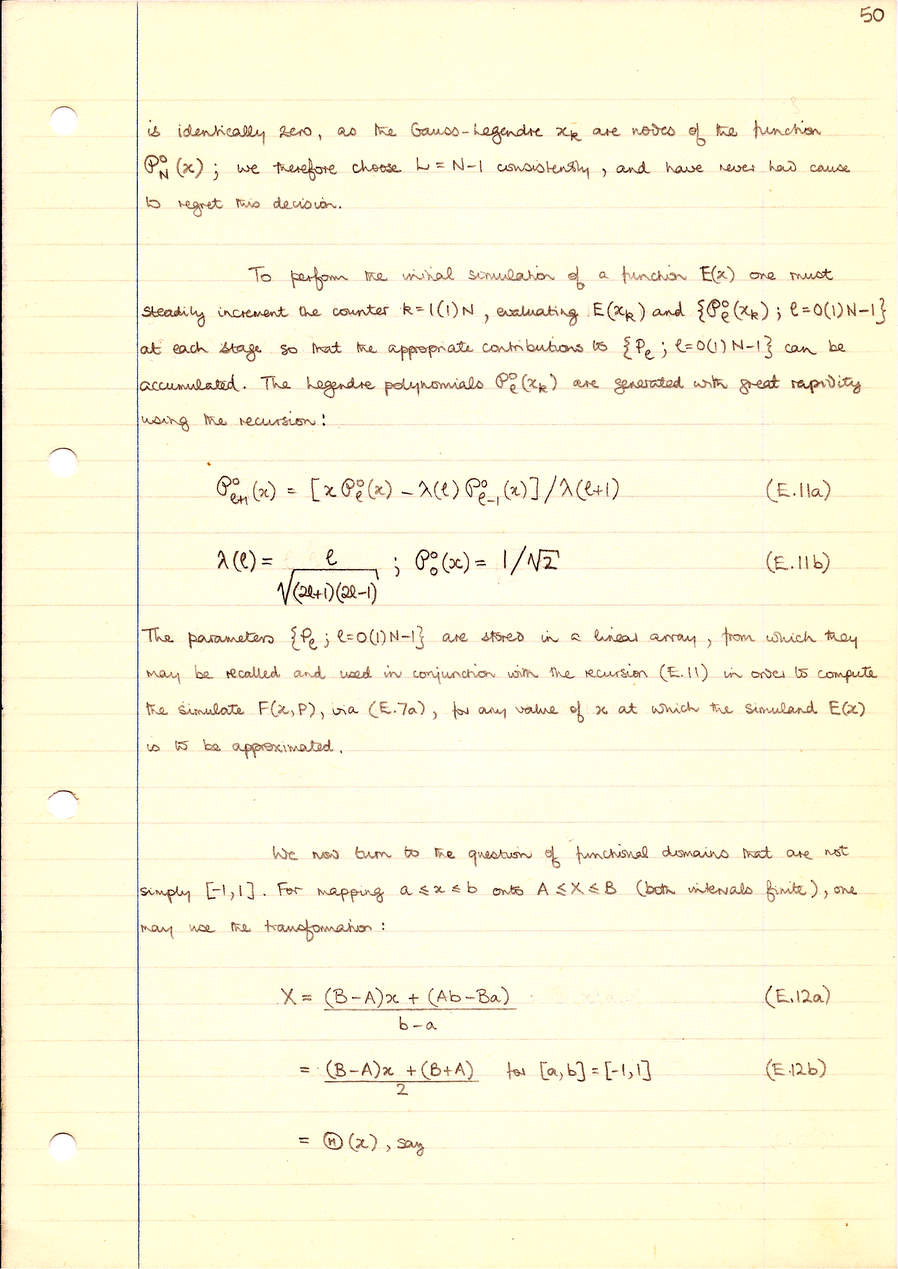 50
is identically zero, as the Gauss-Legendre xₖ are nodes of the function
𝒫°_N(x); we therefore choose L = N-1 consistently, and have never had cause
to regret this decision.
To perform the initial simulation of a function E(x) one must
steadily increment the counter k=1(1)N, evaluating E(xₖ) and {𝒫°_ℓ(xₖ); ℓ=0(1)N-1}
at each stage so that the appropriate contributions to {P_ℓ; ℓ=0(1)N-1} can be
accumulated. The Legendre polynomials 𝒫°_ℓ(xₖ) are generated with great rapidity
using the recursion:
𝒫°_ℓ+1(x) = [x𝒫°_ℓ(x) - λ(ℓ)𝒫°_ℓ-1(x)]/λ(ℓ+1) (E.11a)
λ(ℓ) = ℓ/√((2ℓ+1)(2ℓ-1)) ; 𝒫°_0(x) = 1/√2 (E.11b)
The parameters {P_ℓ; ℓ=0(1)N-1} are stored in a linear array, from which they
may be recalled and used in conjunction with the recursion (E.11) in order to compute
the simulate F(x,P), via (E.7a), for any value of x at which the simuland E(x)
is to be approximated.
We now turn to the question of functional domains that are not
simply [-1,1]. For mapping a ≤ x ≤ b onto A ≤ X ≤ B (both intervals finite), one
may use the transformation:
X = ((B-A)x + (Ab-Ba))/(b-a) (E.12a)
= ((B-A)x + (B+A))/2 for [a,b] = [-1,1] (E.12b)
= Ⓗ(x), say